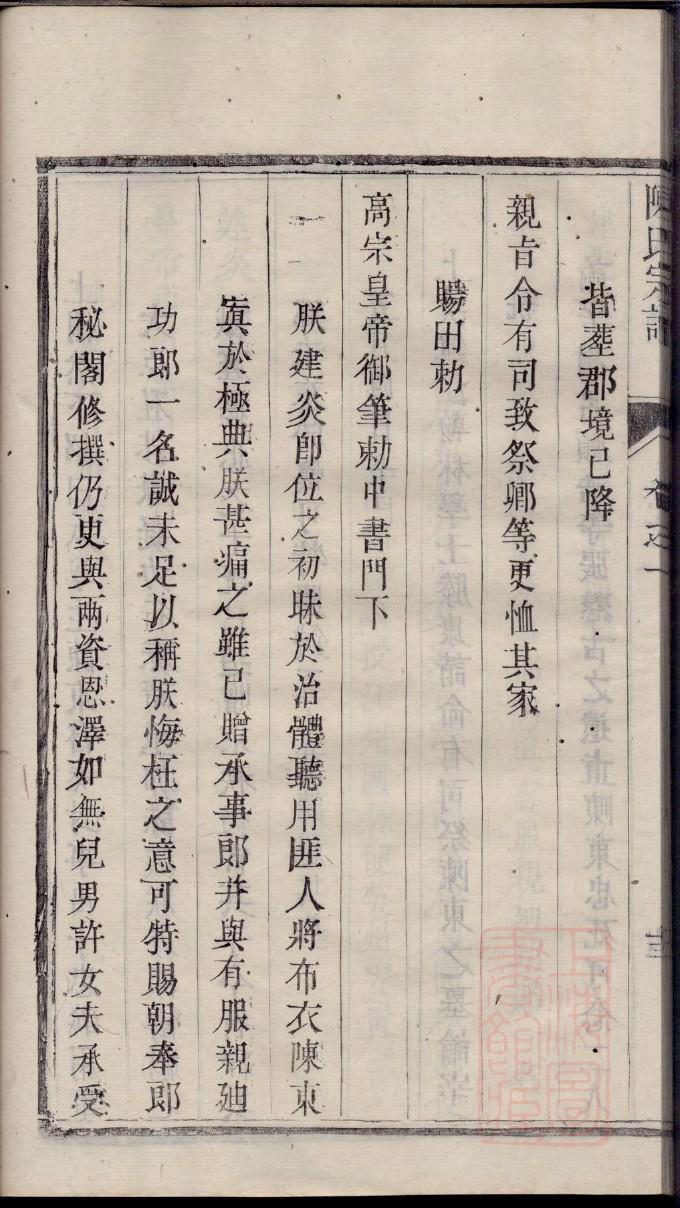 陳氏宗譜 卷之一
皆塟郡境已降
親㫖令有司致祭卿等更恤其家
賜田勅
高宗皇帝御筆勅中書門下
朕建炎卽位之初昧於治體聽用匪人將布衣陳東
寘於極典朕甚痛之雖已贈承事郎并與有服親廸
功郎一名誠未足以稱朕悔枉之意可特賜朝奉郎
秘閣修撰仍更與兩資恩澤如無兒男許女夫承受